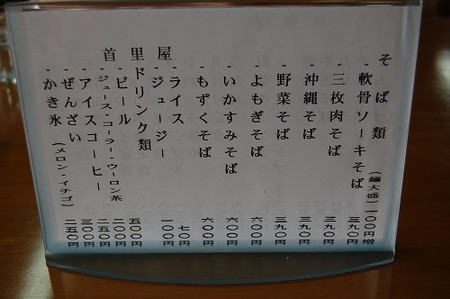 そば類 (麺大盛)一〇〇円増
・軟骨ソーキそば 三九〇円
・三枚肉そば 三九〇円
・沖縄そば 三九〇円
・野菜そば 三九〇円
・よもぎそば 六〇〇円
・いかすみそば 六〇〇円
・もずくそば 六〇〇円
・ライス 七〇円
・ジュージー 一〇〇円
首里屋
ドリンク類
・ビール 五〇〇円
・ジュース・コーラー・ウーロン茶 二〇〇円
・アイスコーヒー 二五〇円
・ぜんざい 三〇〇円
・かき氷(メロン・イチゴ) 二五〇円